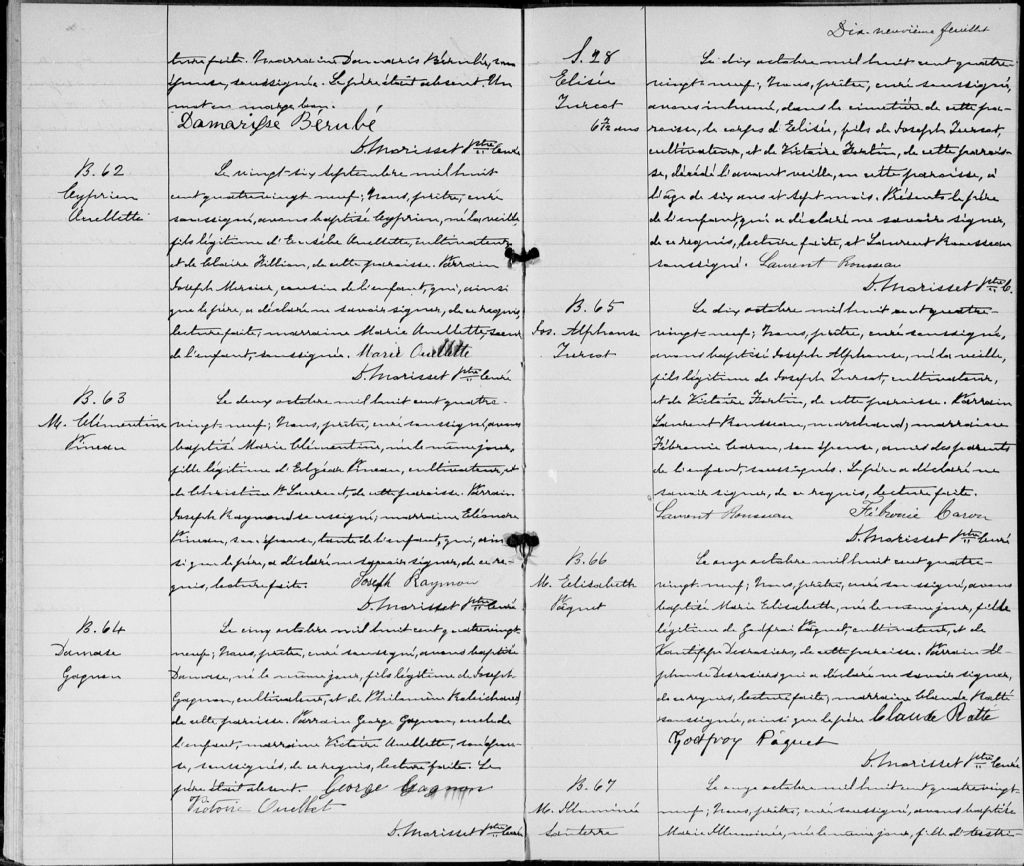 ture faite. Marraine Damaris Bérubé, son
épouse, soussignée. Le père était absent. Un
mot en marge bon.
Damarisse Bérubé
D. Morisset Ptre Curé
B. 62
Cyprien
Ouellette
Le vingt-six septembre mil huit
cent quatrevingt neuf; Nous, prêtre, curé
soussigné, avons baptisé Cyprien, né la veille,
fils légitime d'Eusèbe Ouellette, cultivateur,
et de Claire Fillion, de cette paroisse. Parrain
Joseph Mercier, cousin de l'enfant, qui, ainsi
que le père, a déclaré ne savoir signer, de ce requis,
lecture faite, marraine Marie Ouellette, soeur
de l'enfant, soussignée. Marie Ouellette
D. Morisset Ptre Curé
B. 63
M. Clémentine
Pineau
Le deux octobre mil huit cent quatre-
vingt-neuf; Nous, prêtre, curé soussigné, avons
baptisé Marie Clémentine, née le même jour,
fille légitime d'Elzéar Pineau, cultivateur, et
de Christine St Laurent, de cette paroisse. Parrain
Joseph Raymond soussigné; marraine Eléonore
Pineau, son épouse, tante de l'enfant, qui, ain-
si que le père, a déclaré ne savoir signer, de ce re-
quis, lecture faite. Joseph Raymon
D. Morisset Ptre Curé
B. 64
Damase
Gagnon
Le cinq octobre mil huit cent quatrevingt
neuf; Nous, prêtre, curé soussigné, avons baptisé
Damase, né le même jour, fils légitime de Joseph
Gagnon, cultivateur, et de Philomène Robichaud,
de cette paroisse. Parrain George Gagnon, oncle de
l'enfant, marraine Victoire Ouellette, son épou-
se, soussignés, de ce requis, lecture faite. Le
père était absent. George Gagnon
Victoire Ouellet
D. Morisset Ptre Curé
Dix-neuvième feuillet
S. 28
Elisée
Turcot
6 7/12 ans
Le dix octobre mil huit cent quatre-
vingt-neuf; Nous, prêtre, curé soussigné,
avons inhumé, dans le cimetière de cette pa-
roisse, le corps d'Elisée, fils de Joseph Turcot,
cultivateur, et de Victoire Fortin, de cette parois-
se, décédé l'avant veille, en cette paroisse, à
l'âge de six ans et sept mois. Présents le père
de l'enfant, qui a déclaré ne savoir signer,
de ce requis, lecture faite, et Laurent Rousseau
soussigné. Laurent Rousseau
D. Morisset Ptre C.
B. 65
Jos. Alphonse
Turcot
Le dix octobre mil huit cent quatre-
vingt-neuf; Nous, prêtre, curé soussigné,
avons baptisé Joseph Alphonse, né la veille,
fils légitime de Joseph Turcot, cultivateur,
et de Victoire Fortin, de cette paroisse. Parrain
Laurent Rousseau, marchand; marraine
Fébronie Caron, son épouse, amis des parents
de l'enfant, soussignés. Le père a déclaré ne
savoir signer, de ce requis, lecture faite.
Laurent Rousseau Fébronie Caron
D. Morisset Ptre Curé
B. 66
M. Elisabeth
Paquet
Le onze octobre mil huit cent quatre-
vingt-neuf; Nous, prêtre, curé soussigné, avons
baptisé Marie Elisabeth, née le même jour, fille
légitime de Godfroi Paquet, cultivateur, et de
Xantippe Desrosiers, de cette paroisse. Parrain Al-
phonse Desrosiers qui a déclaré ne savoir signer,
de ce requis, lecture faite; marraine Claude Ratté
soussignée, ainsi que le père Claude Ratté
Godfroy Pâquet
D. Morisset Ptre Curé
B. 67
M. Illuminée
Santerre
Le onze octobre mil huit cent quatrevingt
neuf; Nous, prêtre, curé soussigné, avons baptisé
Marie Illuminée, née le même jour, fille